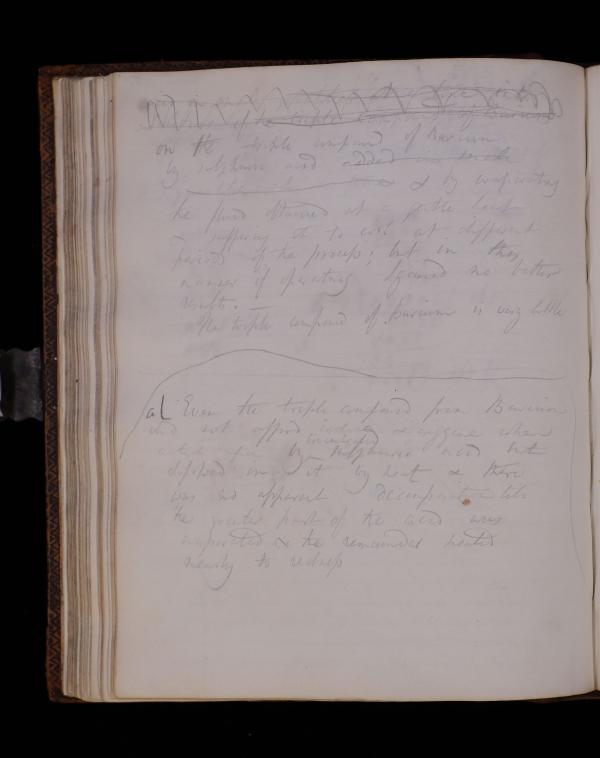 of the triple compound of Barium
on the triple compound of Barium
by sulphuric acid added
& by evaporating
the fluid obtained at a gentle heat
& suffering it to cool at different
periods of the process; but in this
manner of operating I gained no better
results. —
The triple compound of Barium is very little
al Even the triple compound from Barium
did not afford iodine & oxygene when
acted upon by concentrated sulphuric acid but
deposed on it by heat & there
was no apparent decomposition till
the greater part of the acid was
evaporated & the remainder heated
nearly to redness